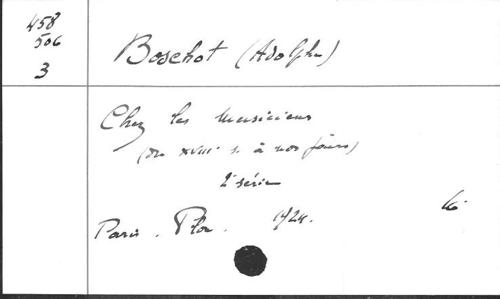 458
506
3
Boschot (Adolphe)
Chez les musiciens
(du XVIIIe s. à nos jours)
2e série
Paris. Plon. 1924. 16°